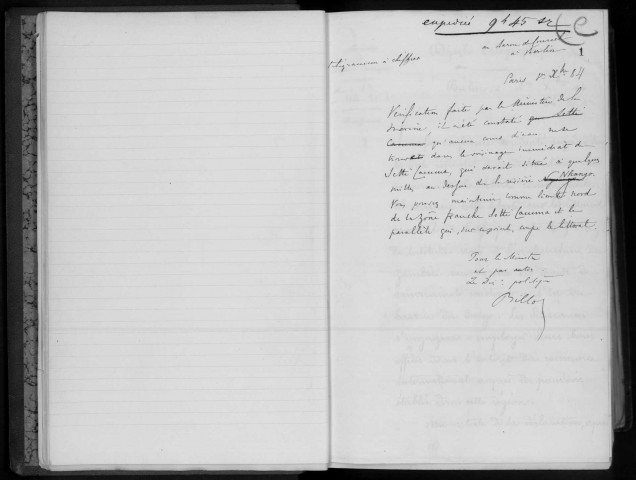 expédié 9h 45 sr
au Baron de Courcel
à Berlin
1
Télégramme à chiffrer
Paris Xbre 84
Vérification faite par le Ministère de la
Marine, il a été constaté que Setté
Camma qu'aucun cours d'eau ne se
trouve dans le voisinage immédiat de
Setté Camma, qui serait situé à quelques
milles au dessus de la rivière Nhanga.
Vous pouvez maintenir comme limite nord
de la zone franche Setté Camma et le
parallèle qui, sur ce point, coupe le littoral.
Pour le Ministre
et par autor.
Le Dir. politique
Billot